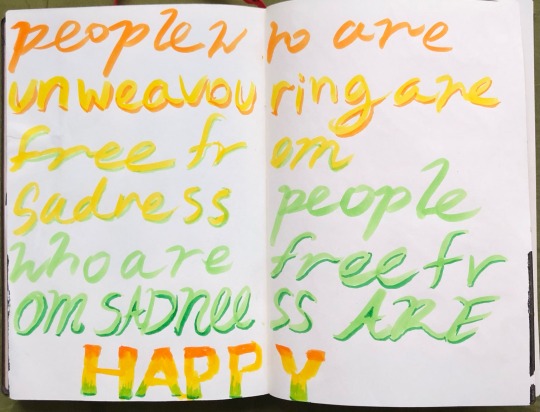 people who are
unweavouring are
free from
sadness people
who are free fr
om SADNeeSS ARE
HAPPY